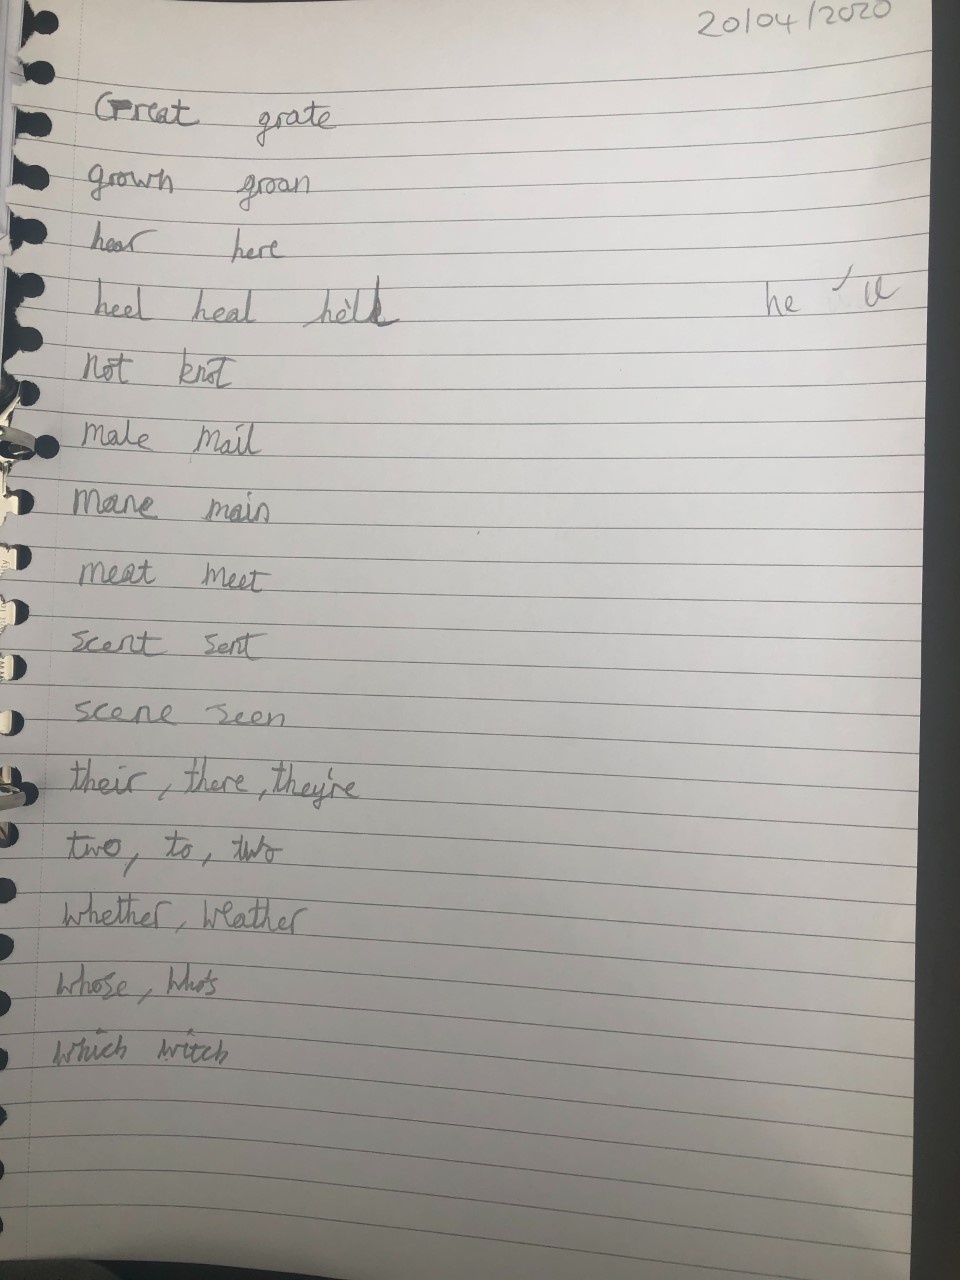 20/04/2020
Great grate
grown groan
hear here
heel heal he'll he'll
not knot
male mail
mane main
meat meet
scent sent
scene seen
their, there, they're
two, to,
whether, weather
whose, who's
which witch